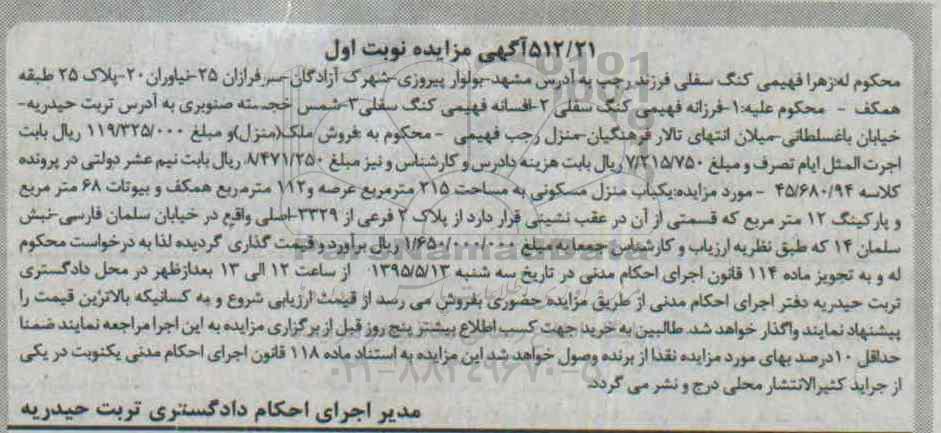 ۵۱۲/۲۱آگهی مزایده نوبت اول
محکوم له:زهرا فهیمی کنگ سفلی فرزند رجب به آدرس مشهد-بولوار پیروزی-شهرک آزادگان-سرفرازان ۲۵-نیاوران۲۰-پلاک ۲۵ طبقه
همکف - محکوم علیه:۱-فرزانه فهیمی کنگ سفلی ۲-افسانه فهیمی کنگ سفلی۳-شمس خجسته صنوبری به آدرس تربت حیدریه-
خیابان باغسلطانی-میلان انتهای تالار فرهنگیان-منزل رجب فهیمی - محکوم به :فروش ملک(منزل)و مبلغ ۱۱۹/۳۲۵/۰۰۰ ریال بابت
اجرت المثل ایام تصرف و مبلغ ۷/۲۱۵/۷۵۰ ریال بابت هزینه دادرس و کارشناس و نیز مبلغ ۸/۴۷۱/۲۵۰ ریال بابت نیم عشر دولتی در پرونده
کلاسه ۴۵/۶۸۰/۹۴ - مورد مزایده:یکباب منزل مسکونی به مساحت ۲۱۵ مترمربع عرصه و۱۱۲ مترمربع همکف و بیوتات ۶۸ متر مربع
و پارکینگ ۱۲ متر مربع که قسمتی از آن در عقب نشینی قرار دارد از پلاک ۲ فرعی از ۳۳۲۹-اصلی واقع در خیابان سلمان فارسی-نبش
سلمان ۱۴ که طبق نظریه ارزیاب و کارشناس جمعا به مبلغ ۱/۶۵۰/۰۰۰/۰۰۰ ریال برآورد و قیمت گذاری گردیده لذا به درخواست محکوم
له و به تجویز ماده ۱۱۴ قانون اجرای احکام مدنی در تاریخ سه شنبه ۱۳۹۵/۵/۱۳ از ساعت ۱۲ الی ۱۳ بعدازظهر در محل دادگستری
تربت حیدریه دفتر اجرای احکام مدنی از طریق مزایده حضوری بفروش می رسد از قیمت ارزیابی شروع و به کسانیکه بالاترین قیمت را
پیشنهاد نمایند واگذار خواهد شد. طالبین به خرید جهت کسب اطلاع بیشتر پنج روز قبل از برگزاری مزایده به این اجرا مراجعه نمایند ضمنا
حداقل ۱۰درصد بهای مورد مزایده نقدا از برنده وصول خواهد شد این مزایده به استناد ماده ۱۱۸ قانون اجرای احکام مدنی یکنوبت در یکی
از جراید کثیرالانتشار محلی درج و نشر می گردد.
مدیر اجرای احکام دادگستری تربت حیدریه
ParsNamadData
۰۲۱-۸۸۳۴۹۶۷۰-۵